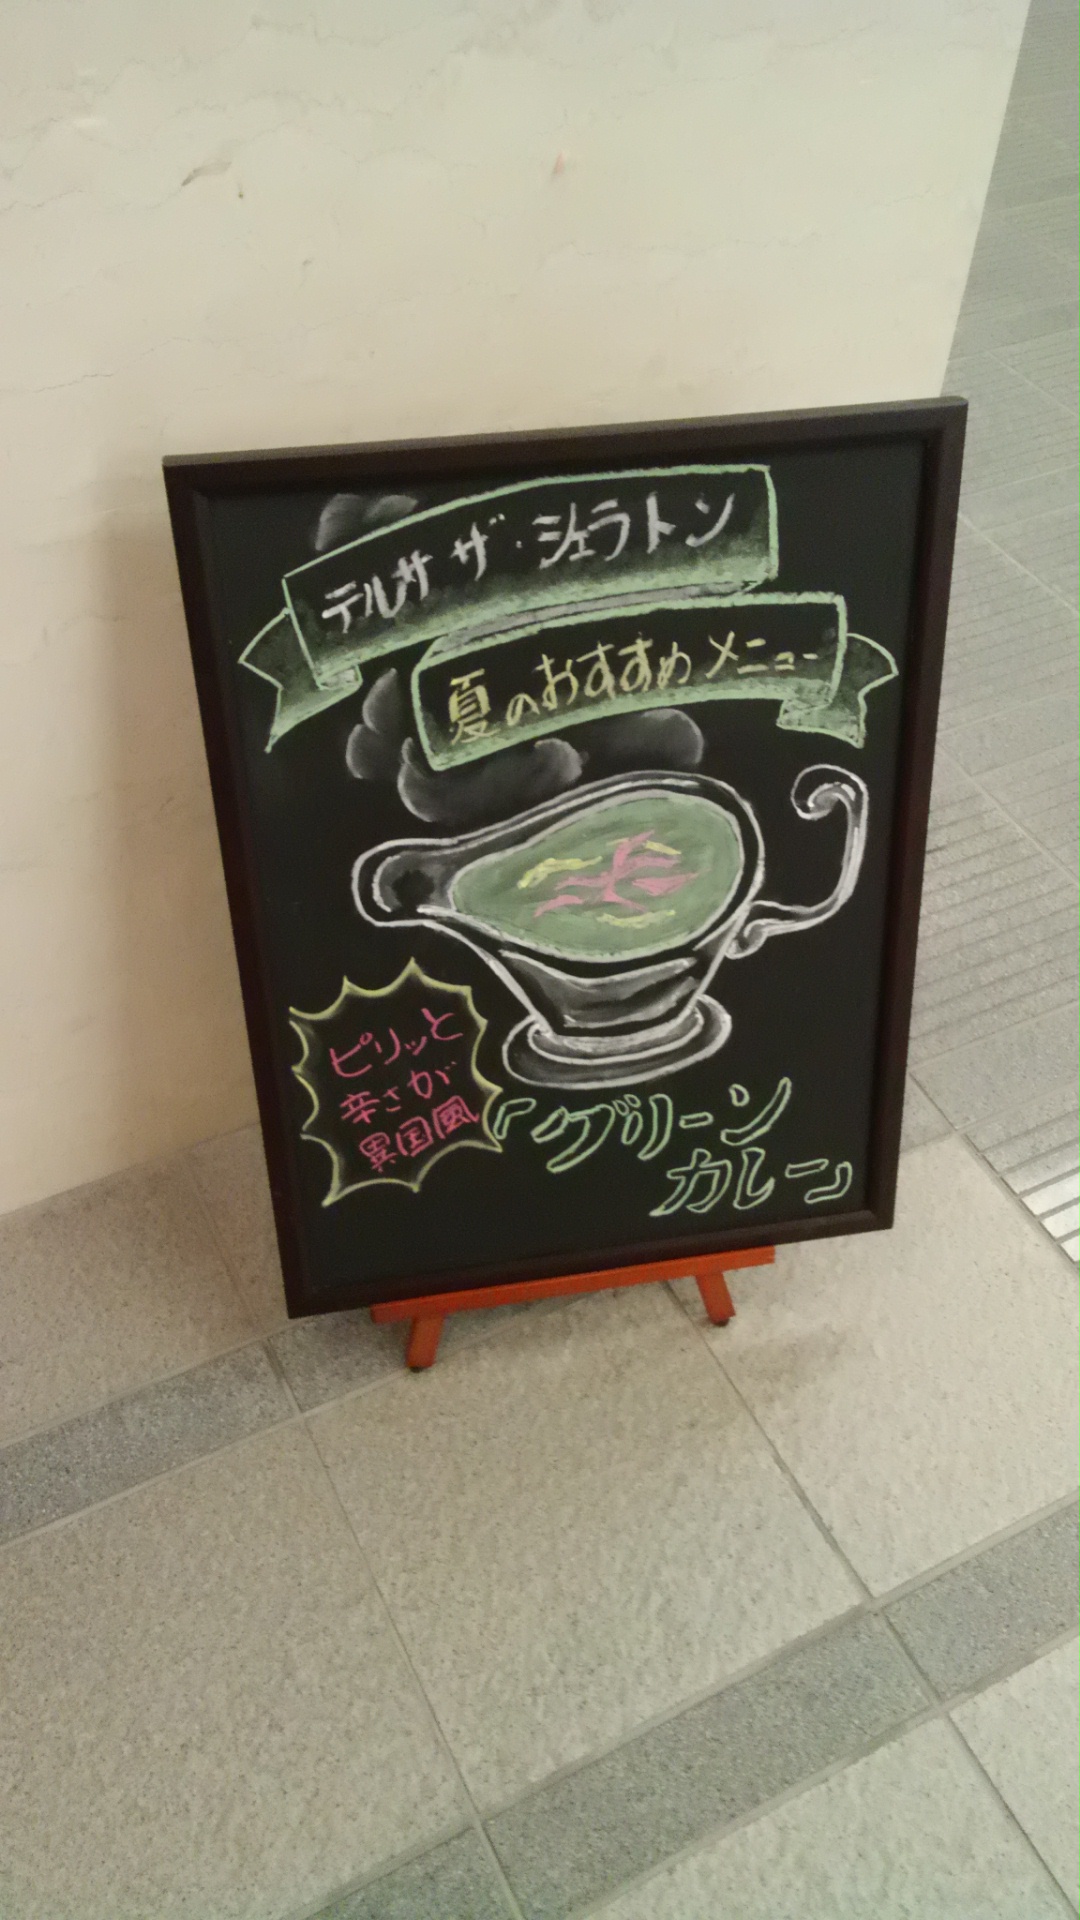 テルサ ザ・シェラトン
夏のおすすめメニュー
ピリッと
辛さが
異国風
「グリーン
カレー」